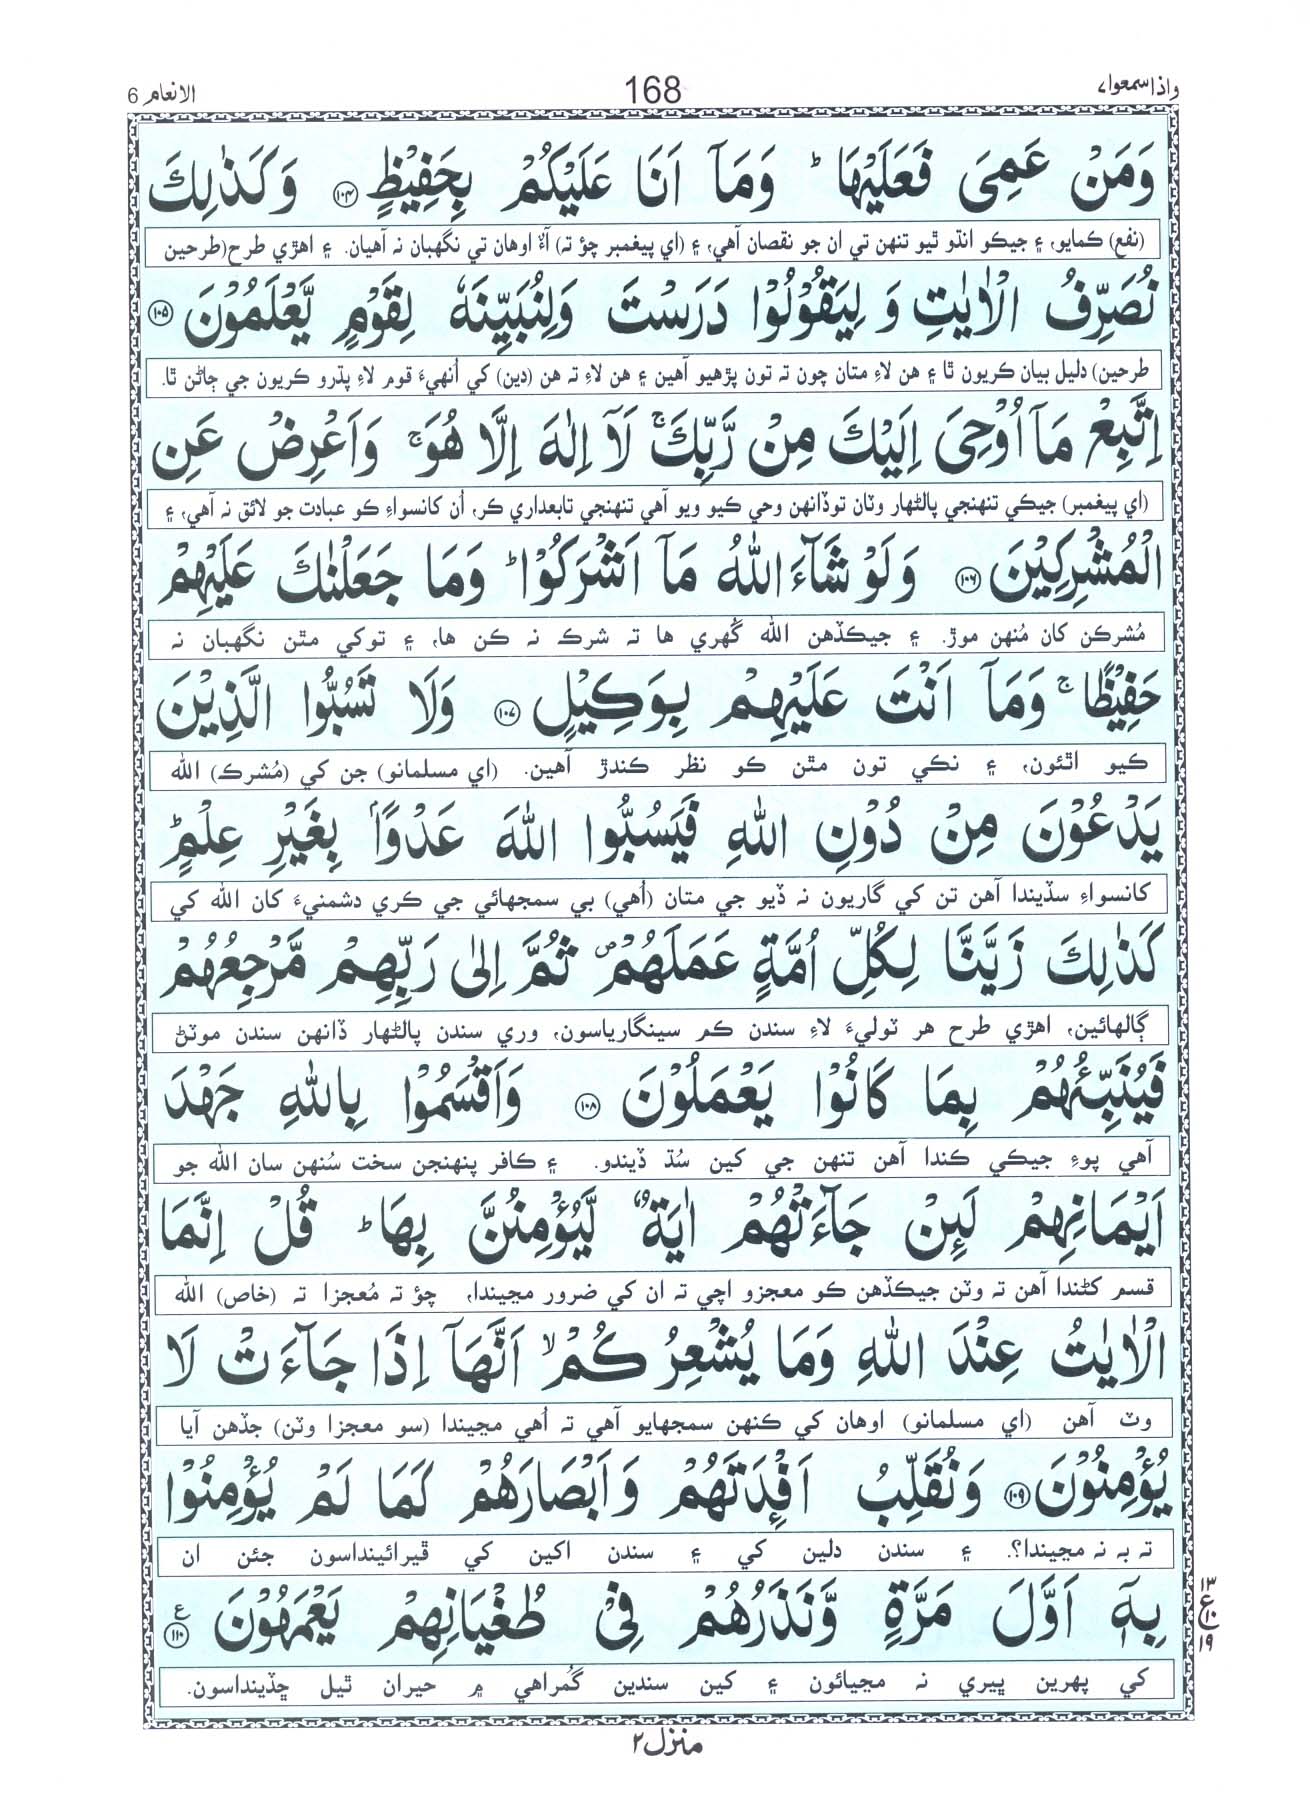 واذاسمعوا۷ 168 الانعام 6
وَمَنْ عَمِىَ فَعَلَيْهَا ؕ وَمَاۤ اَنَا عَلَيْكُمْ بِحَفِيْظٍ ۝۱۰۴ وَكَذٰلِكَ
(نفع) ڪمايو، ۽ جيڪو انڌو ٿيو تنهن تي ان جو نقصان آهي، ۽ (اي پيغمبر چؤ ته) آءٌ اوهان تي نگهبان نہ آهيان. ۽ اهڙي طرح(طرحين
نُصَرِّفُ الْاٰيٰتِ وَ لِيَقُوْلُوْا دَرَسْتَ وَلِنُبَيِّنَهٗ لِقَوْمٍ يَّعْلَمُوْنَ ۝۱۰۵
طرحين) دليل بيان ڪريون ٿا ۽ هن لاءِ متان چون ته تون پڙهيو آهين ۽ هن لاءِ ته هن (دين) کي اُنهيءَ قوم لاءِ پڌرو ڪريون جي ڄاڻن ٿا.
اِتَّبِعْ مَاۤ اُوْحِىَ اِلَيْكَ مِنْ رَّبِّكَ ۚ لَاۤ اِلٰهَ اِلَّا هُوَ ۚ وَاَعْرِضْ عَنِ
(اي پيغمبر) جيڪي تنهنجي پالڻهار وٽان توڏانهن وحي ڪيو ويو آهي تنهنجي تابعداري ڪر، اُن کانسواءِ ڪو عبادت جو لائق نہ آهي، ۽
الْمُشْرِكِيْنَ ۝۱۰۶ وَلَوْ شَآءَ اللّٰهُ مَاۤ اَشْرَكُوْا ؕ وَمَا جَعَلْنٰكَ عَلَيْهِمْ
مُشرڪن کان مُنهن موڙ. ۽ جيڪڏهن الله گُهري ها ته شرڪ نہ ڪن ها، ۽ توکي مٿن نگهبان نہ
حَفِيْظًا ۚ وَمَاۤ اَنْتَ عَلَيْهِمْ بِوَكِيْلٍ ۝۱۰۷ وَلَا تَسُبُّوا الَّذِيْنَ
ڪيو اٿئون، ۽ نڪي تون مٿن ڪو نظر ڪندڙ آهين. (اي مسلمانو) جن کي (مُشرڪ) الله
يَدْعُوْنَ مِنْ دُوْنِ اللّٰهِ فَيَسُبُّوا اللّٰهَ عَدْوًاۢ بِغَيْرِ عِلْمٍ ؕ
کانسواءِ سڏيندا آهن تن کي گاريون نہ ڏيو جي متان (اُهي) بي سمجهائي جي ڪري دشمنيءَ کان الله کي
كَذٰلِكَ زَيَّنَّا لِكُلِّ اُمَّةٍ عَمَلَهُمْ ۪ ثُمَّ اِلٰى رَبِّهِمْ مَّرْجِعُهُمْ
ڳالهائين، اهڙي طرح هر ٽوليءَ لاءِ سندن ڪم سينگارياسون، وري سندن پالڻهار ڏانهن سندن موٽڻ
فَيُنَبِّئُهُمْ بِمَا كَانُوْا يَعْمَلُوْنَ ۝۱۰۸ وَاَقْسَمُوْا بِاللّٰهِ جَهْدَ
آهي پوءِ جيڪي ڪندا آهن تنهن جي کين سُڌ ڏيندو. ۽ ڪافر پنهنجن سخت سُنهن سان الله جو
اَيْمَانِهِمْ لَئِنْ جَآءَتْهُمْ اٰيَةٌ لَّيُؤْمِنُنَّ بِهَا ؕ قُلْ اِنَّمَا
قسم کڻندا آهن ته وٽن جيڪڏهن ڪو معجزو اچي ته ان کي ضرور مڃيندا، چؤ ته مُعجزا ته (خاص) الله
الْاٰيٰتُ عِنْدَ اللّٰهِ وَمَا يُشْعِرُكُمْ ۙ اَنَّهَاۤ اِذَا جَآءَتْ لَا
وٽ آهن (اي مسلمانو) اوهان کي ڪنهن سمجهايو آهي ته اُهي مڃيندا (سو معجزا وٽن) جڏهن آيا
يُؤْمِنُوْنَ ۝۱۰۹ وَنُقَلِّبُ اَفْـِٕدَتَهُمْ وَاَبْصَارَهُمْ كَمَا لَمْ يُؤْمِنُوْا
ته به نہ مڃيندا؟. ۽ سندن دلين کي ۽ سندن اکين کي ڦيرائينداسون جئن ان
بِهٖۤ اَوَّلَ مَرَّةٍ وَّنَذَرُهُمْ فِىْ طُغْيَانِهِمْ يَعْمَهُوْنَ ۝۱۱۰ ع
۱۳
ع
۱۰
۱۹
کي پهرين ڀيري نہ مڃيائون ۽ کين سندين گُمراهي ۾ حيران ٿيل ڇڏينداسون.
منزل۲